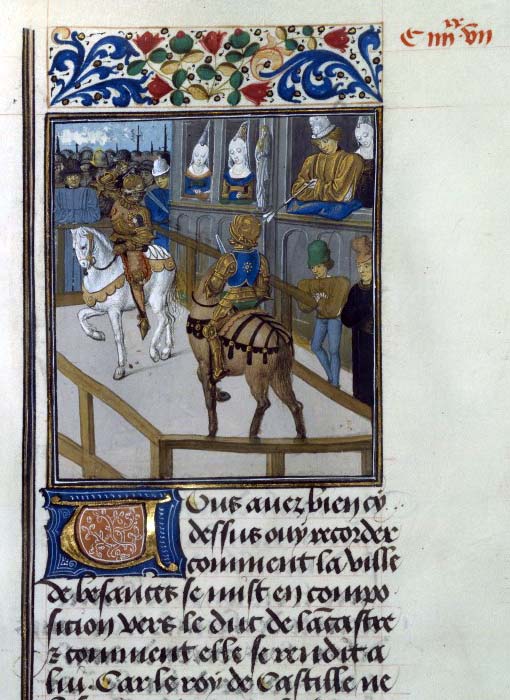 C iiii xx vii
Vous avez bien cy
dessus ouy recorder
comment la ville
de besances se mist en compo
sicion vers le duc de lancastre
z comment elle se rendit a
lui Car le roy de Castille ne